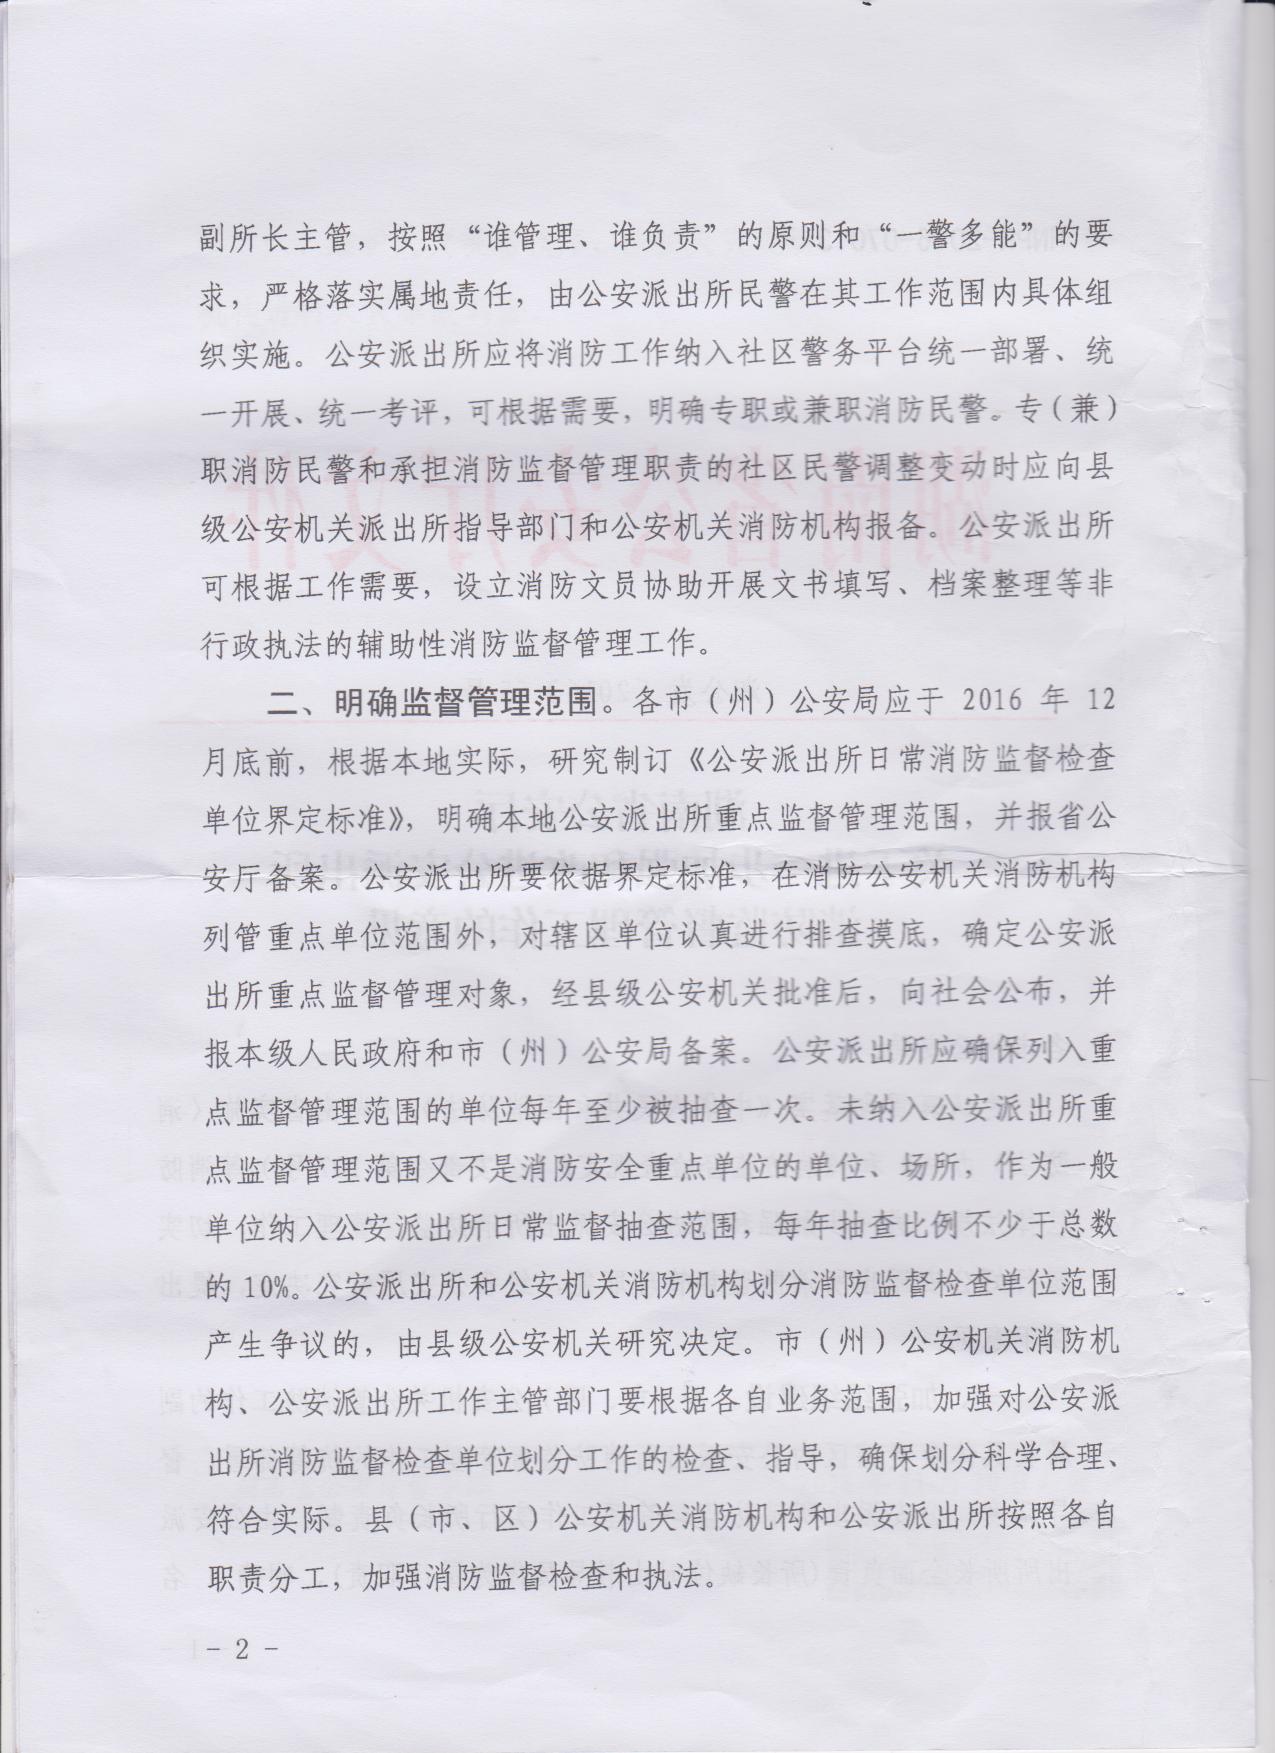 副所长主管，按照“谁管理、谁负责”的原则和“一警多能”的要
求，严格落实属地责任，由公安派出所民警在其工作范围内具体组
织实施。公安派出所应将消防工作纳入社区警务平台统一部署、统
一开展、统一考评，可根据需要，明确专职或兼职消防民警。专（兼）
职消防民警和承担消防监督管理职责的社区民警调整变动时应向县
级公安机关派出所指导部门和公安机关消防机构报备。公安派出所
可根据工作需要，设立消防文员协助开展文书填写、档案整理等非
行政执法的辅助性消防监督管理工作。
二、明确监督管理范围。各市（州）公安局应于 2016 年 12
月底前，根据本地实际，研究制订《公安派出所日常消防监督检查
单位界定标准》，明确本地公安派出所重点监督管理范围，并报省公
安厅备案。公安派出所要依据界定标准，在消防公安机关消防机构
列管重点单位范围外，对辖区单位认真进行排查摸底，确定公安派
出所重点监督管理对象，经县级公安机关批准后，向社会公布，并
报本级人民政府和市（州）公安局备案。公安派出所应确保列入重
点监督管理范围的单位每年至少被抽查一次。未纳入公安派出所重
点监督管理范围又不是消防安全重点单位的单位、场所，作为一般
单位纳入公安派出所日常监督抽查范围，每年抽查比例不少于总数
的 10%。公安派出所和公安机关消防机构划分消防监督检查单位范围
产生争议的，由县级公安机关研究决定。市（州）公安机关消防机
构、公安派出所工作主管部门要根据各自业务范围，加强对公安派
出所消防监督检查单位划分工作的检查、指导，确保划分科学合理、
符合实际。县（市、区）公安机关消防机构和公安派出所按照各自
职责分工，加强消防监督检查和执法。
- 2 -